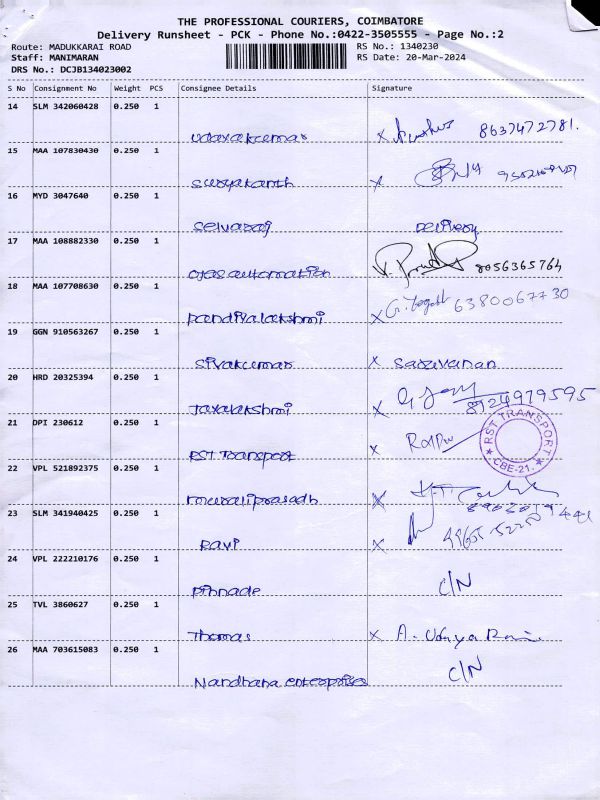 THE PROFESSIONAL COURIERS, COIMBATORE
Delivery Runsheet - PCK - Phone No.:0422-3505555 - Page No.:2
Route: MADUKKARAI ROAD RS No.: 1340230
Staff: MANIMARAN RS Date: 20-Mar-2024
DRS No.: DCJB134023002
S No Consignment No Weight PCS Consignee Details Signature
14 SLM 342060428 0.250 1
udayakumar x 8637472781.
15 MAA 107830430 0.250 1
suryakanth x
16 MYD 3047640 0.250 1
selvaraj Delivery
17 MAA 108882330 0.250 1
ojas automation 8056365764
18 MAA 107708630 0.250 1
pandiyalakshmi x 6380067730
19 GGN 910563267 0.250 1
sivakumar x saravanan
20 HRD 20325394 0.250 1
Jayalakshmi x 8124979595
21 DPI 230612 0.250 1
RST Transport x RST TRANSPORT CBE-21.
22 VPL 521892375 0.250 1
muraliprasadh x
23 SLM 341940425 0.250 1
Ravi x
24 VPL 222210176 0.250 1
pinnade C/N
25 TVL 3860627 0.250 1
Thomas x A. Udaya
26 MAA 703615083 0.250 1
Nandhana enterprises C/N